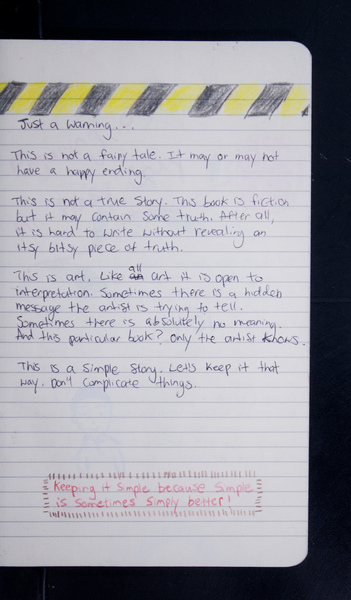 Just a warning...
This is not a fairy tale. It may or may not
have a happy ending.
This is not a true story. This book is fiction
but it may contain some truth. After all,
it is hard to write without revealing an
itsy bitsy piece of truth.
This is art. Like all art it is open to
interpretation. Sometimes there is a hidden
message the artist is trying to tell.
Sometimes there is absolutely no meaning.
And this particular book? Only the artist knows.
This is a simple story. Let's keep it that
way. Don't complicate things.
Keeping it simple because simple
is sometimes simply better!